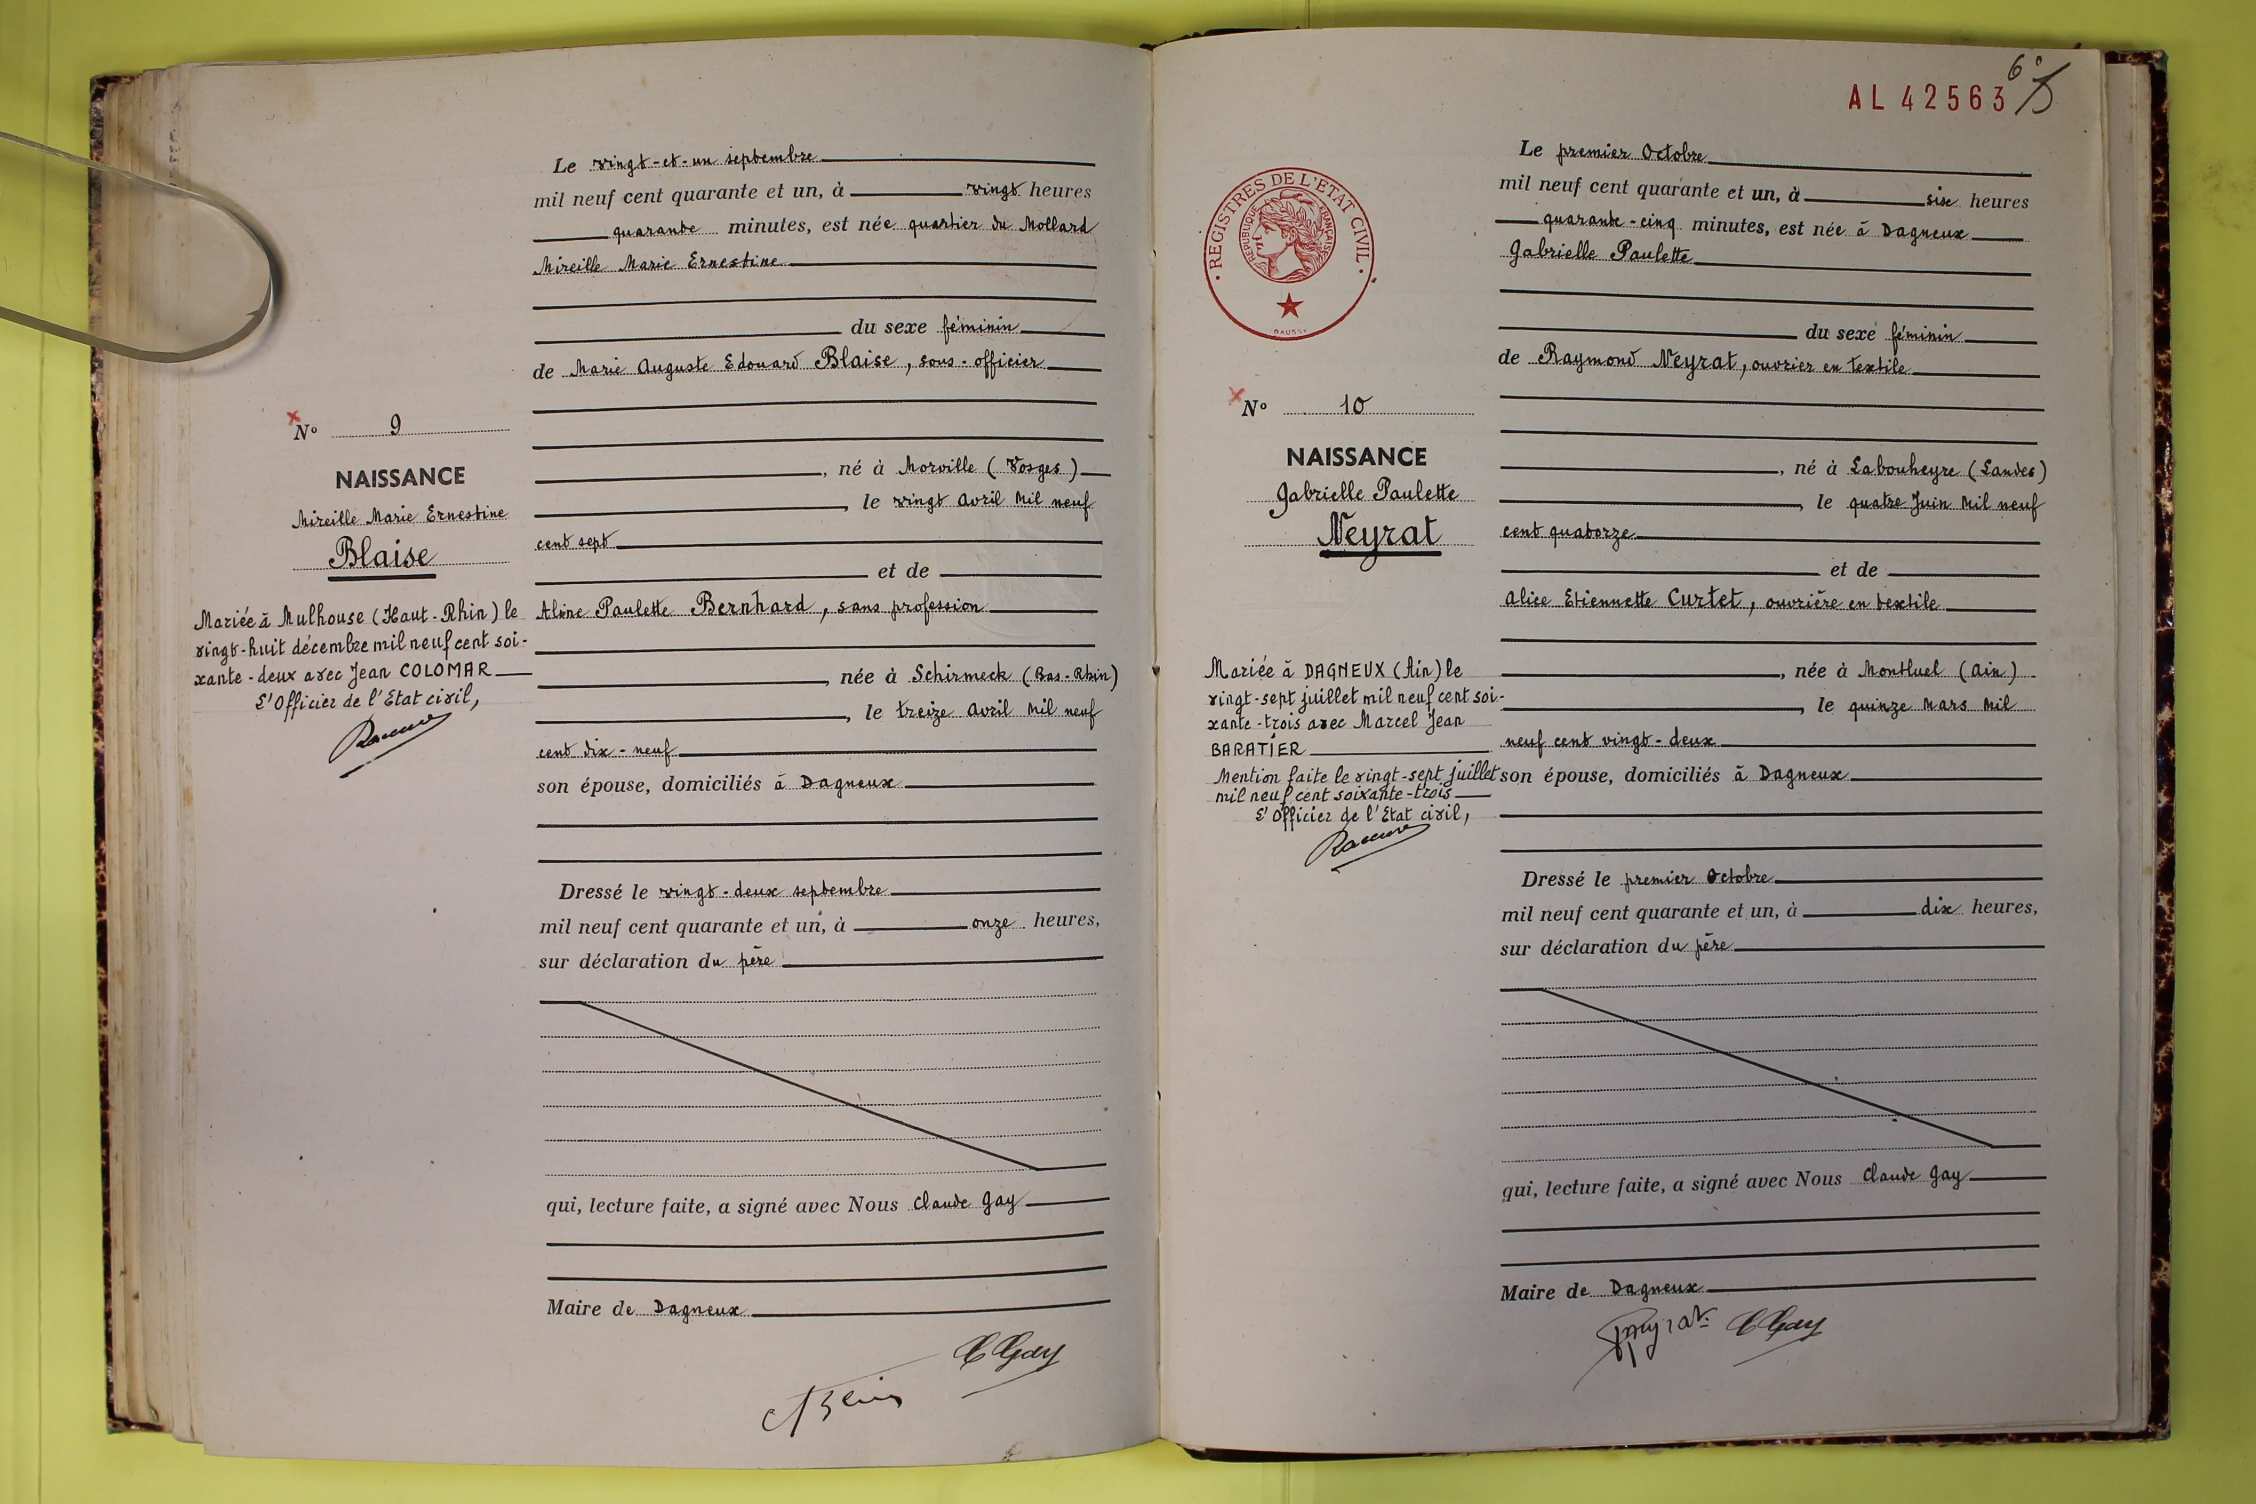 Le vingt-et-un septembre
mil neuf cent quarante et un, à vingt heures
quarante minutes, est née quartier du Mollard
Mireille Marie Ernestine
du sexe féminin
de Marie Auguste Edouard Blaise, sous-officier
N° 9
né à Morville (Vosges)
NAISSANCE
, le vingt Avril Mil neuf
Mireille Marie Ernestine
cent sept
Blaise
et de
Aline Paulette Bernhard, sans profession
Mariée à Mulhouse (Haut-Rhin) le
vingt-huit décembre mil neuf cent soi-
xante-deux avec Jean COLOMAR
L'Officier de l'Etat civil,
, née à Schirmeck (Bas-Rhin)
, le treize Avril Mil neuf
cent dix-neuf
son épouse, domiciliés à Dagneux
Dressé le vingt-deux septembre
mil neuf cent quarante et un, à onze heures,
sur déclaration du père
qui, lecture faite, a signé avec Nous Claude Gay
Maire de Dagneux
C Gay
6e
AL 42563
REGISTRES DE L'ETAT CIVIL
REPUBLIQUE FRANÇAISE
Le premier Octobre
mil neuf cent quarante et un, à six heures
quarante-cinq minutes, est née à Dagneux
Gabrielle Paulette
du sexe féminin
de Raymond Neyrat, ouvrier en textile
N° 10
NAISSANCE
Gabrielle Paulette
Neyrat
, né à Labouheyre (Landes)
, le quatre Juin Mil neuf
cent quatorze
et de
Alice Etiennette Curtet, ouvrière en textile
Mariée à DAGNEUX (Ain) le
vingt-sept juillet mil neuf cent soi-
xante-trois avec Marcel Jean
BARATIER
Mention faite le vingt-sept juillet
mil neuf cent soixante-trois
L'Officier de l'Etat civil,
, née à Montluel (Ain)
, le quinze Mars Mil
neuf cent vingt-deux
son épouse, domiciliés à Dagneux
Dressé le premier Octobre
mil neuf cent quarante et un, à dix heures,
sur déclaration du père
qui, lecture faite, a signé avec Nous Claude Gay
Maire de Dagneux
Neyrat C Gay